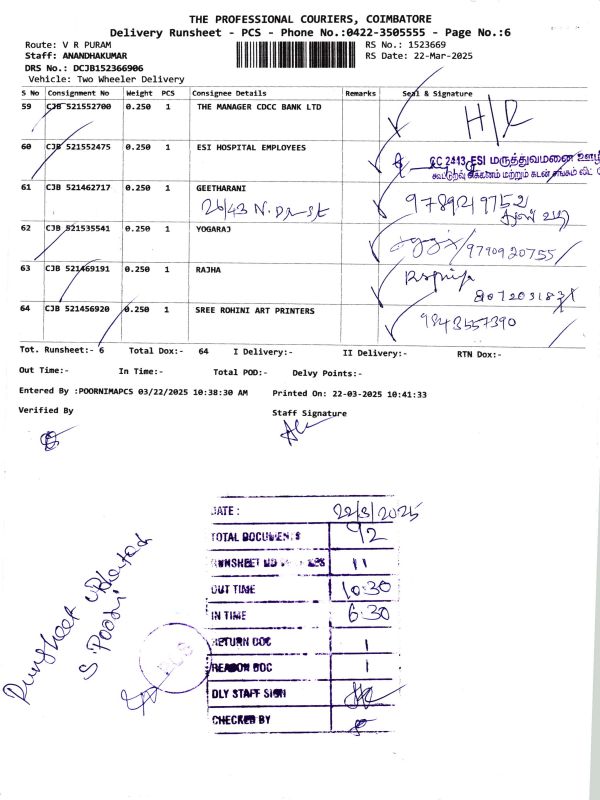 THE PROFESSIONAL COURIERS, COIMBATORE
Delivery Runsheet - PCS - Phone No.:0422-3505555 - Page No.:6
Route: V R PURAM
RS No.: 1523669
Staff: ANANDHAKUMAR
RS Date: 22-Mar-2025
DRS No.: DCJB152366906
Vehicle: Two Wheeler Delivery
S No Consignment No Weight PCS Consignee Details Remarks Seal & Signature
59 CJB 521552700 0.250 1 THE MANAGER CDCC BANK LTD H/R
60 CJB 521552475 0.250 1 ESI HOSPITAL EMPLOYEES
CC 2413 ESI மருத்துவமனை
61 CJB 521462717 0.250 1 GEETHARANI 9789219752
26/43 N.
62 CJB 521535541 0.250 1 YOGARAJ 9790920755
63 CJB 521469191 0.250 1 RAJHA
64 CJB 521456920 0.250 1 SREE ROHINI ART PRINTERS 9843557390
Tot. Runsheet:- 6 Total Dox:- 64 I Delivery:- II Delivery:- RTN Dox:-
Out Time:- In Time:- Total POD:- Delvy Points:-
Entered By :POORNIMAPCS 03/22/2025 10:38:30 AM Printed On: 22-03-2025 10:41:33
Verified By Staff Signature
DATE : 22/3/2025
TOTAL DOCUMENTS 92
RUNSHEET 11
OUT TIME 10:30
IN TIME 6:30
RETURN DOC 1
REASON DOC 1
DLY STAFF SIGN
CHECKED BY
Runsheet
S. Poorni
PCS